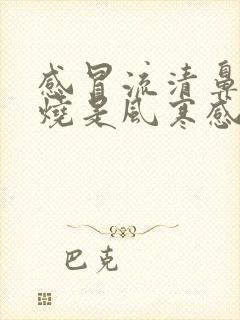 感冒流清鼻
燒是風寒感
巴克